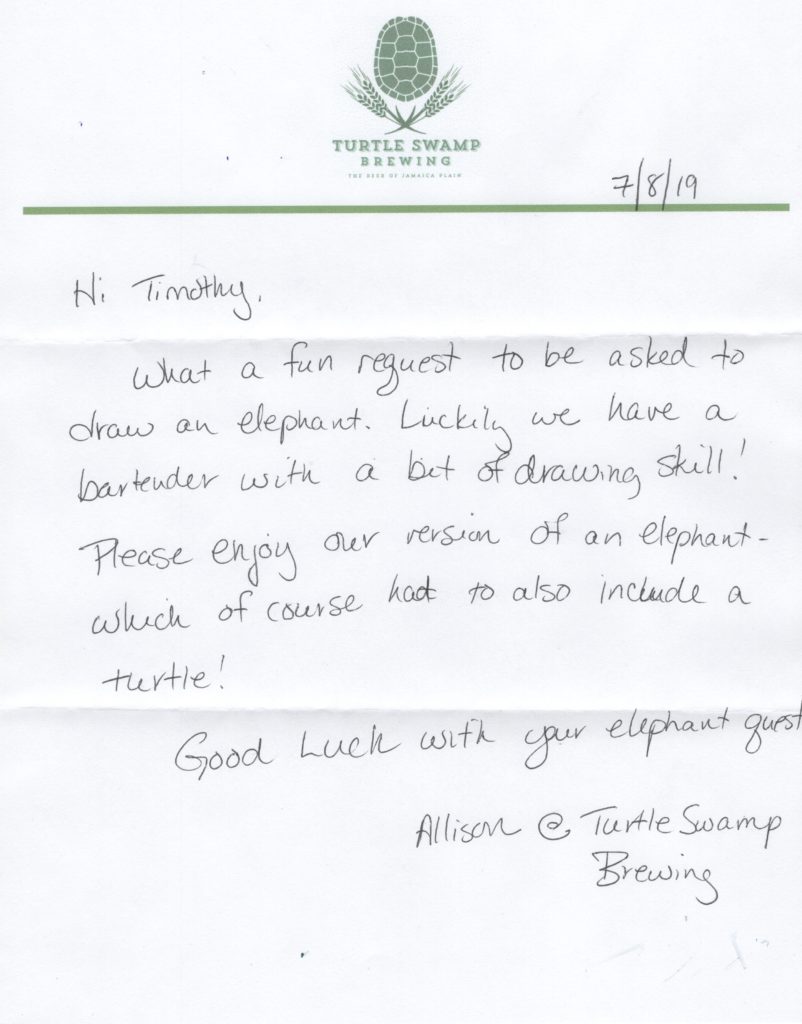 TURTLE SWAMP
BREWING
THE BEER OF JAMAICA PLAIN
7/8/19
Hi Timothy,
What a fun request to be asked to
draw an elephant. Luckily we have a
bartender with a bit of drawing skill!
Please enjoy our version of an elephant-
which of course had to also include a
turtle!
Good Luck with your elephant quest
Allison @ Turtle Swamp
Brewing